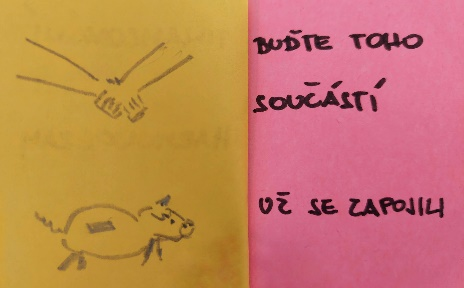 BUĎTE TOHO
SOUČÁSTÍ
UŽ SE ZAPOJILI